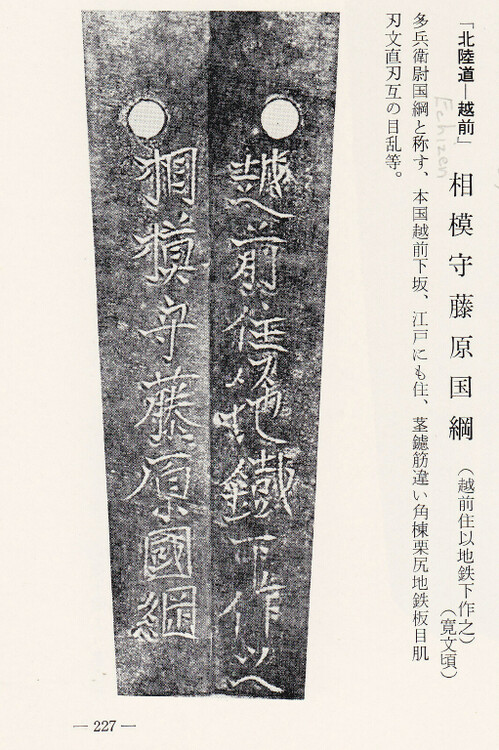 「北陸道―越前」 相模守藤原国綱 (越前住以地鉄下作之)
(寛文頃)
多兵衛尉国綱と称す、本国越前下坂、江戸にも住、茎鑢筋違い角棟栗尻地鉄板目肌
刃文直刃互の目乱等。
Echizen
越前住以地鐵下作之
相模守藤原國綱
— 227 —